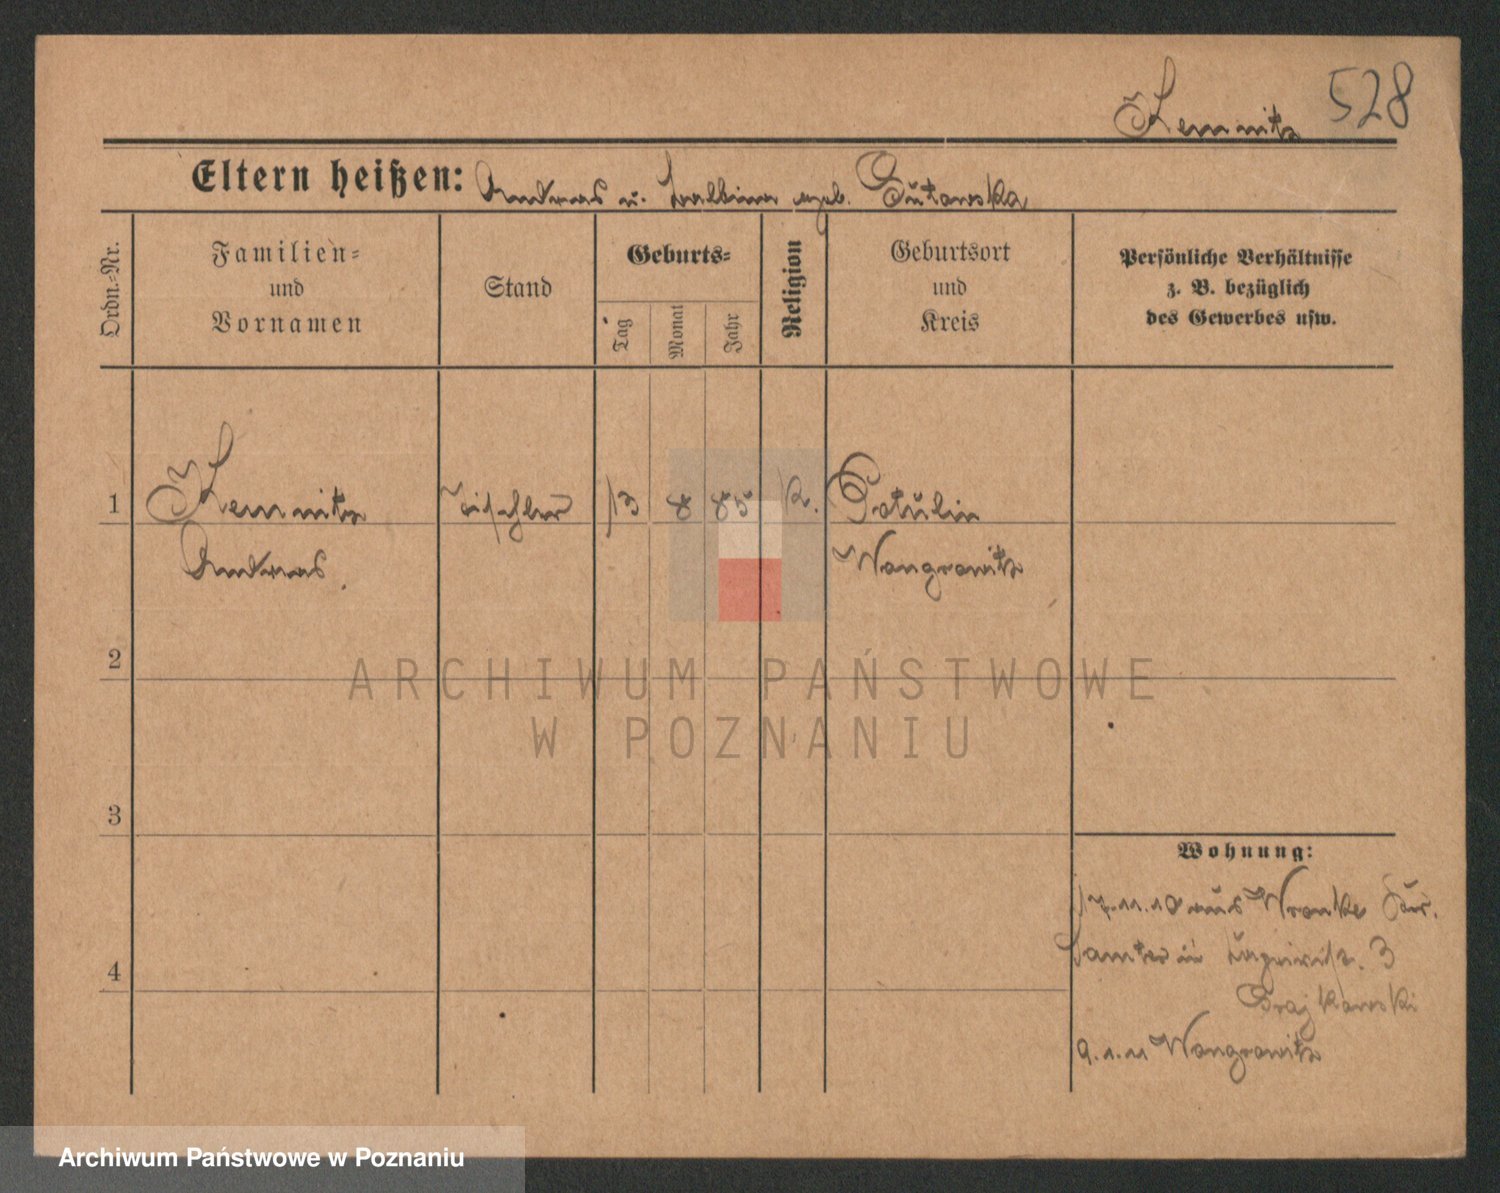 Kemnitz 528
Eltern heißen: Andreas u. Balbina geb. Gutowska
Ordn.-Nr.
Familien-
und
Vornamen
Stand
Geburts-
Tag
Monat
Jahr
Religion
Geburtsort
und
Kreis
Persönliche Verhältnisse
z. B. bezüglich
des Gewerbes usw.
1 Kemnitz Tischler 13 8 85 K. Potulin
Andreas. Wongrowitz
2
3
4
Wohnung:
17.11.10 aus Wronke Kr.
Samter in 3
9.1.11 Wongrowitz
ARCHIWUM PAŃSTWOWE
W POZNANIU
Archiwum Państwowe w Poznaniu